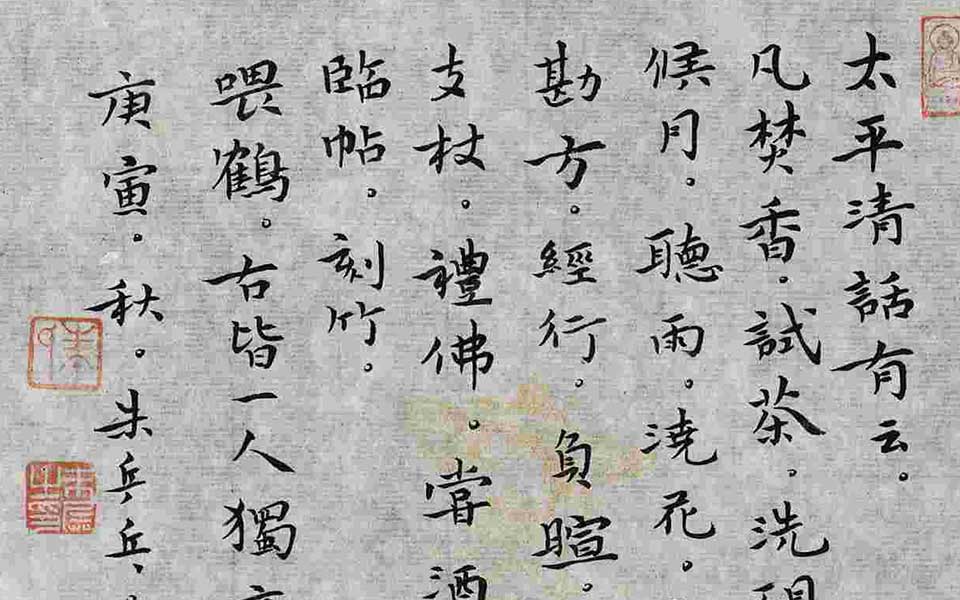 太平清話有云。
凡焚香。試茶。洗硯
候月。聽雨。澆花。
勘方。經行。負暄。
支杖。禮佛。嘗酒
臨帖。刻竹。
喂鶴。右皆一人獨
庚寅。秋。朱乒乓、